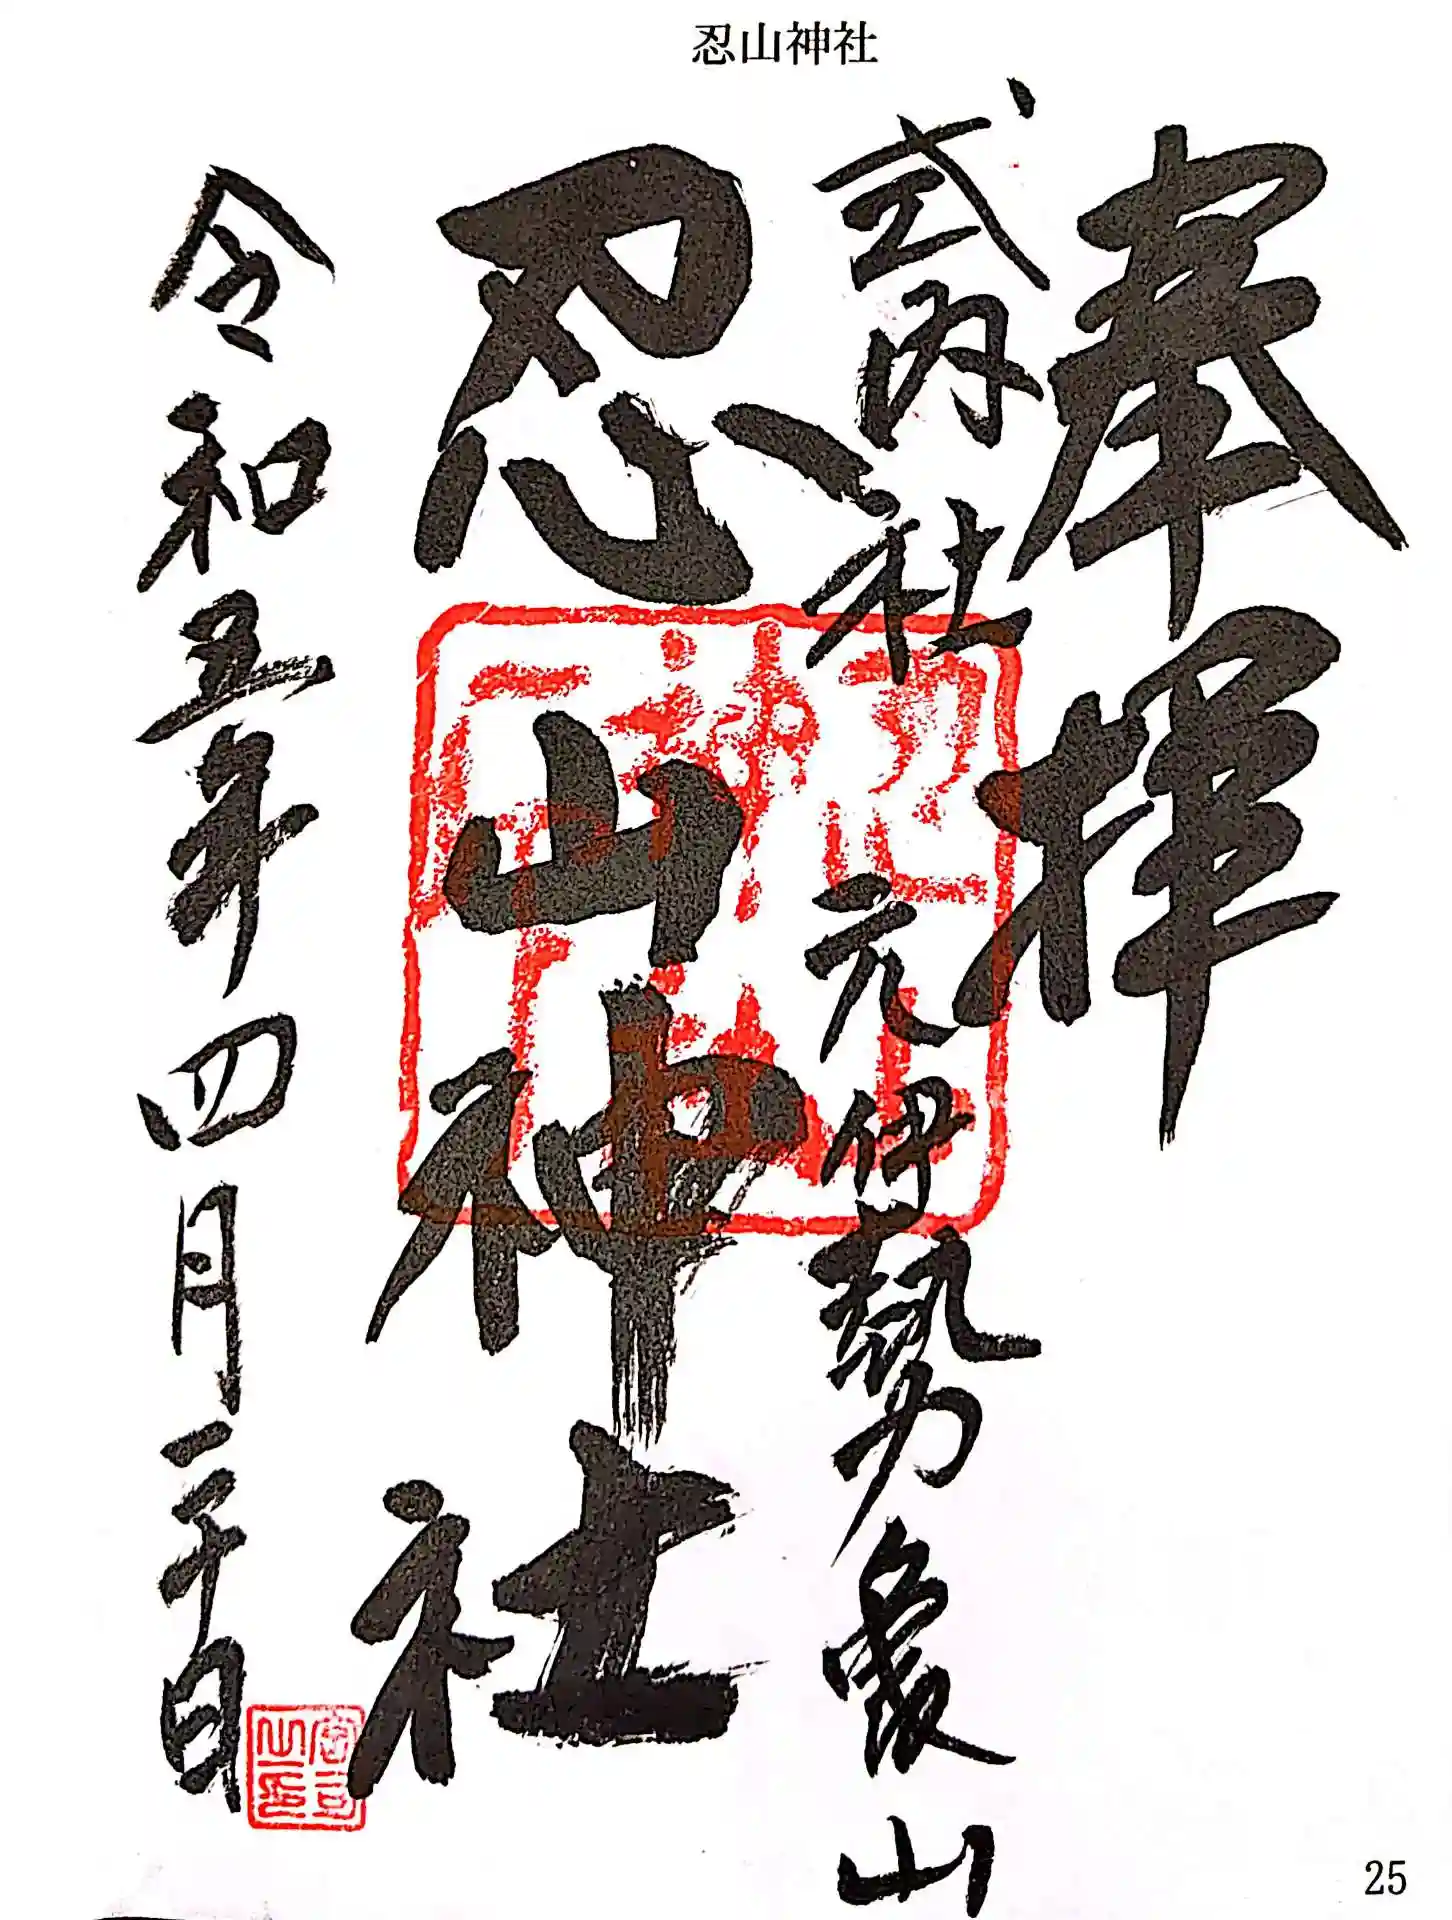 忍山神社
奉拝
式内社 元伊勢
山
忍山神社
令和五年四月二十日
宮司之印
25